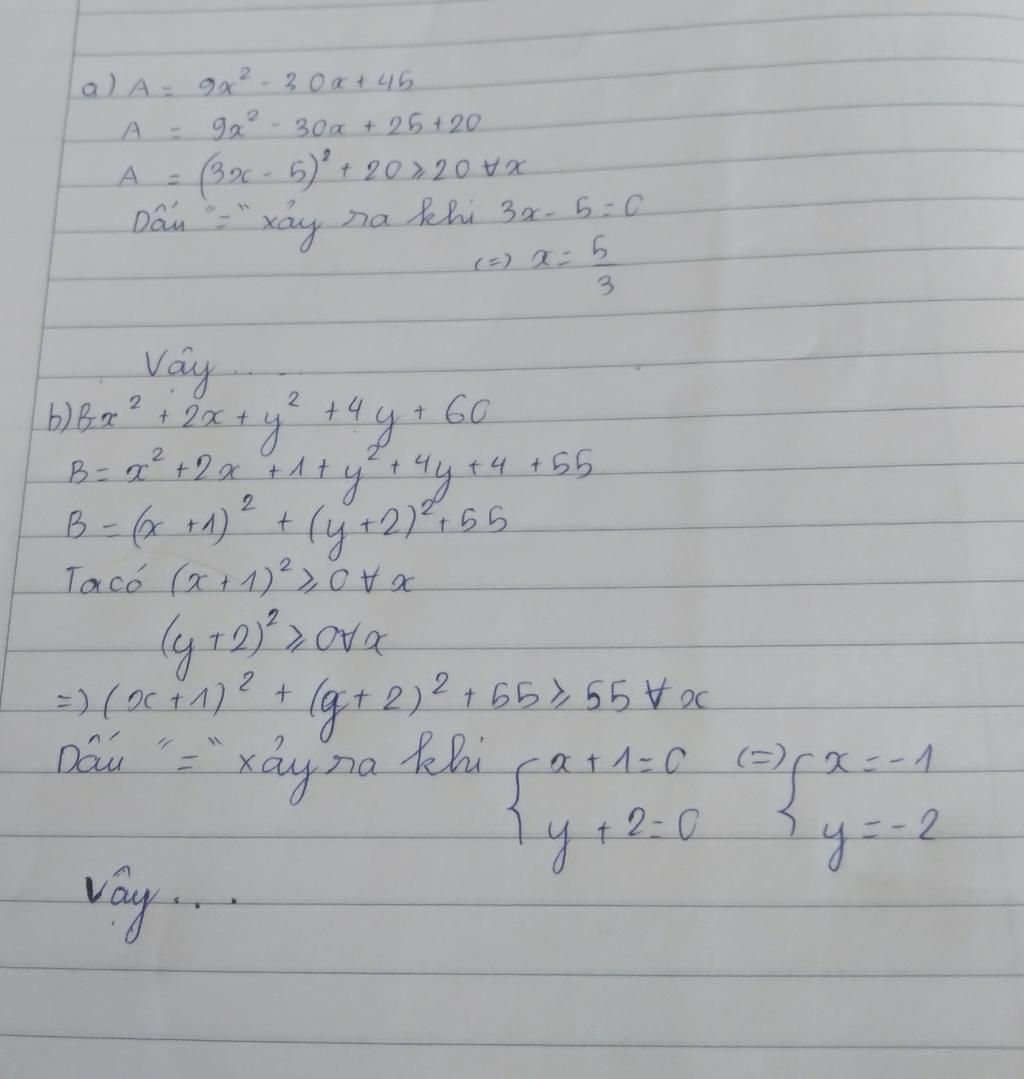 a) A = 9x² - 30x + 45
A = 9x² - 30x + 25 + 20
A = (3x - 5)² + 20 ⩾ 20 ∀x
Dấu "=" xảy ra khi 3x - 5 = 0
(=) x = 5/3
Vậy ....
b) B = x² + 2x + y² + 4y + 60
B = x² + 2x + 1 + y² + 4y + 4 + 55
B = (x + 1)² + (y + 2)² + 55
Ta có (x + 1)² ⩾ 0 ∀x
(y + 2)² ⩾ 0 ∀x
=) (x + 1)² + (y + 2)² + 55 ⩾ 55 ∀x
Dấu "=" xảy ra khi { x + 1 = 0 (=) { x = -1
y + 2 = 0 y = -2
Vậy ...